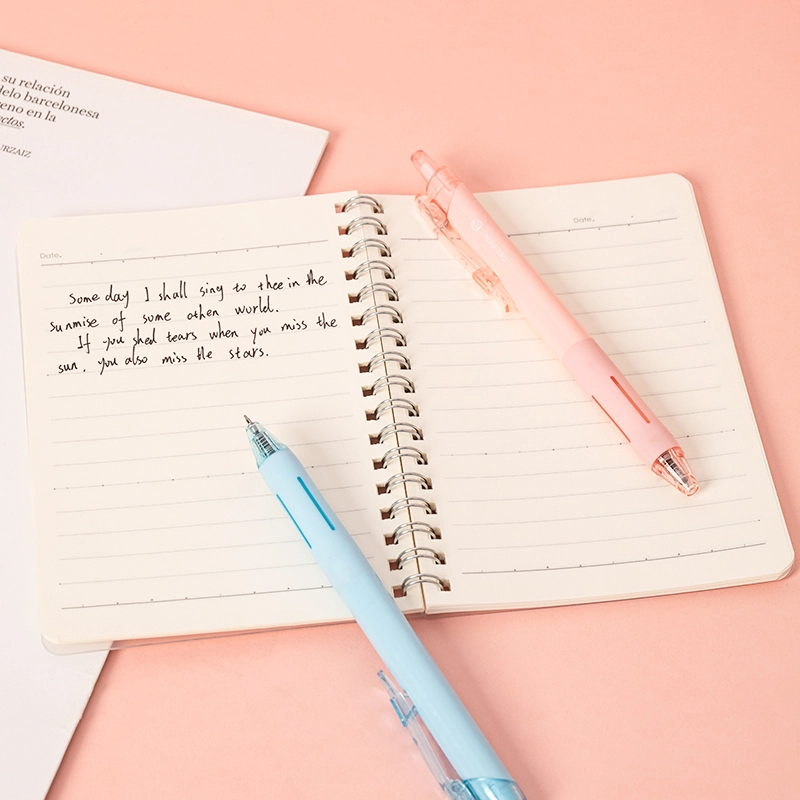 su relación
delo barcelonesa
eno en la
ctos.
URZAIZ
Date.
Date.
Some day I shall sing to thee in the
sunmise of some othen wonld.
If you shed tears when you miss the
sun, you also miss the stars.